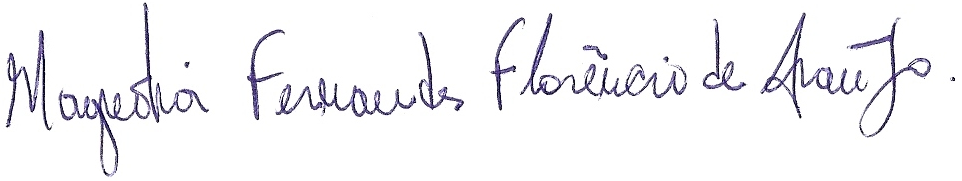 Magnólia Fernandes Florêncio de Araújo.